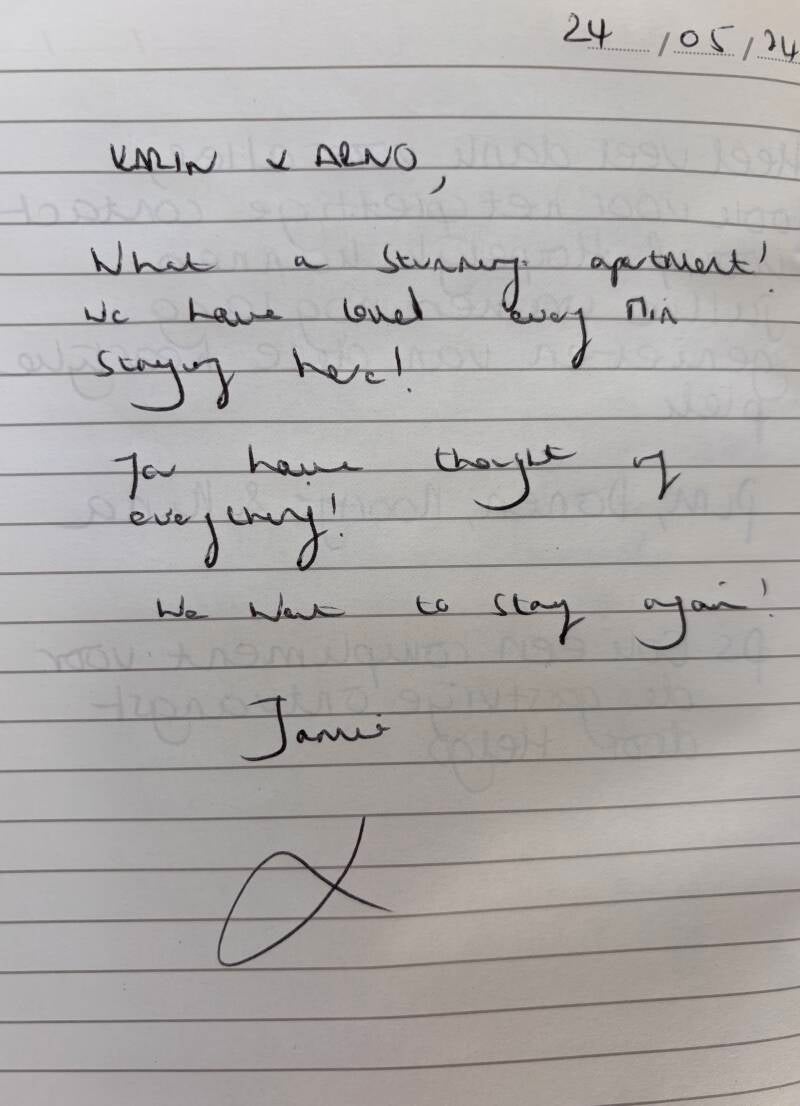 24/05/24
KARIN & ARNO,
What a stunning apartment!
We have loved every min
staying here!
You have thought of
everything!
We want to stay again!
Jamie